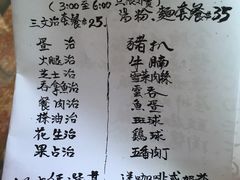 (3:00至6:00
三文治套餐$25. 湯粉、麵套餐$35
蛋治 豬扒
火腿治 牛腩
芝士治 雪菜肉絲
吞拿魚治 雲吞
餐肉治 魚蛋
治 豆球
花生治 鷄球
果占治 五香肉丁
送咖啡或